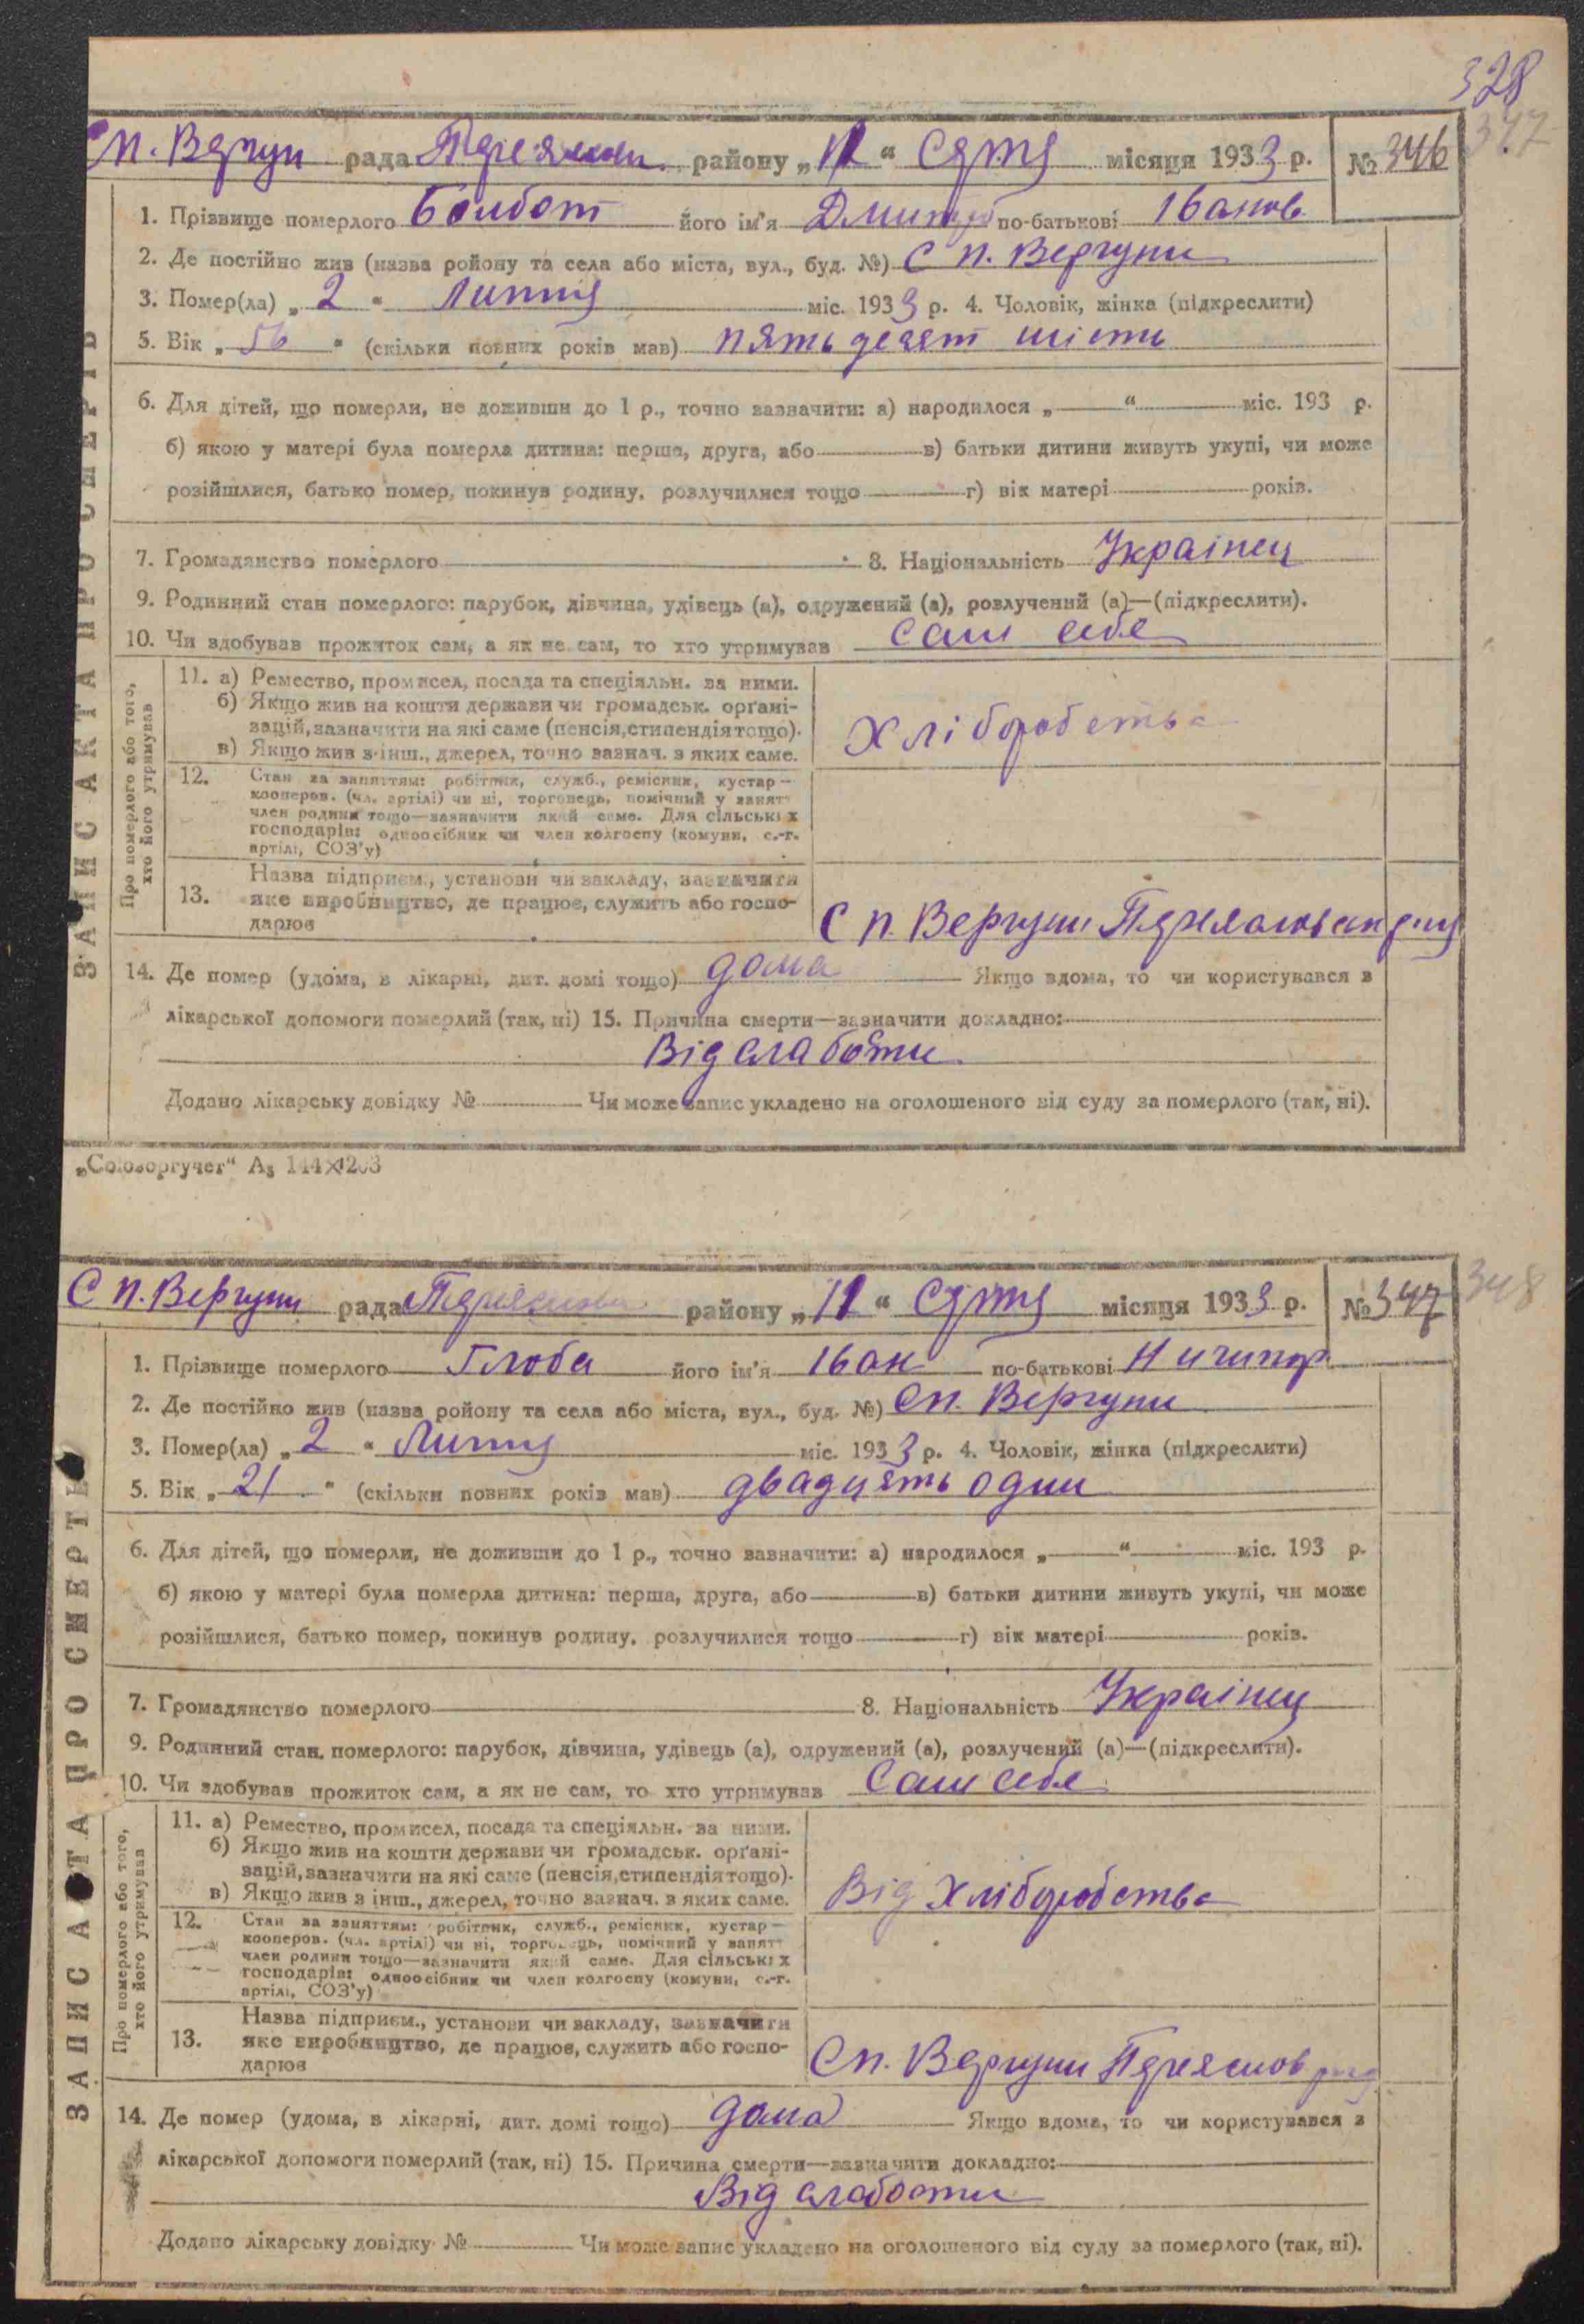 328
347
СП. Вергун рада Переяслав району „11“ Сєртя місяця 1933 р. № 346
ЗАПИС АКТА ПРО СМЕРТЬ
1. Прізвище померлого Болбот його ім'я Дмитро по-батькові Іванов
2. Де постійно жив (назва ройону та села або міста, вул., буд. №) С П. Вергуни
3. Помер(ла) „2“ Липня міс. 1933 р. 4. Чоловік, жінка (підкреслити)
5. Вік „56“ (скільки повних років мав) пять десят шість
6. Для дітей, що померли, не доживши до 1 р., точно зазначити: а) народилося „ “ міс. 193 р.
б) якою у матері була померла дитина: перша, друга, або в) батьки дитини живуть укупі, чи може
розійшлися, батько помер, покинув родину, розлучилися тощо г) вік матері років.
7. Громадянство померлого 8. Національність Українец
9. Родинний стан померлого: парубок, дівчина, удівець (а), одружений (а), розлучений (а)—(підкреслити).
10. Чи здобував прожиток сам, а як не сам, то хто утримував сам себе
Про померлого або того, хто його утримував
11. а) Ремество, промисел, посада та спеціяльн. за ними.
б) Якщо жив на кошти держави чи громадськ. орґані-
зацій, зазначити на які саме (пенсія, стипендія тощо).
в) Якщо жив з інш., джерел, точно зазнач. з яких саме.
Хліборобства
12. Стан за заняттям: робітник, служб., ремісник, кустар—
кооперов. (чл. артілі) чи ні, торговець, помічний у занятт
член родини тощо—зазначити який саме. Для сільських
господарів: одноосібник чи член колгоспу (комуни, с.-г.
артілі, СОЗ'у)
13. Назва підприєм., установи чи закладу, зазначити
яке виробництво, де працює, служить або госпо-
дарює
С П. Вергуни
14. Де помер (удома, в лікарні, дит. домі тощо) дома Якщо вдома, то чи користувався з
лікарської допомоги померлий (так, ні) 15. Причина смерти—зазначити докладно:
Від слабости
Додано лікарську довідку № Чи може запис укладено на оголошеного від суду за померлого (так, ні).
„Союзоргучет“ А₅ 144×203
348
С П. Вергуни рада Переяслов району „11“ Сєртя місяця 1933 р. № 347
ЗАПИС АКТА ПРО СМЕРТЬ
1. Прізвище померлого Глоба його ім'я Іван по-батькові Ничипор
2. Де постійно жив (назва ройону та села або міста, вул., буд. №) СП. Вергуни
3. Помер(ла) „2“ Липня міс. 1933 р. 4. Чоловік, жінка (підкреслити)
5. Вік „21“ (скільки повних років мав) двадцять один
6. Для дітей, що померли, не доживши до 1 р., точно зазначити: а) народилося „ “ міс. 193 р.
б) якою у матері була померла дитина: перша, друга, або в) батьки дитини живуть укупі, чи може
розійшлися, батько помер, покинув родину, розлучилися тощо г) вік матері років.
7. Громадянство померлого 8. Національність Українец
9. Родинний стан померлого: парубок, дівчина, удівець (а), одружений (а), розлучений (а)—(підкреслити).
10. Чи здобував прожиток сам, а як не сам, то хто утримував Сам себе
Про померлого або того, хто його утримував
11. а) Ремество, промисел, посада та спеціяльн. за ними.
б) Якщо жив на кошти держави чи громадськ. орґані-
зацій, зазначити на які саме (пенсія, стипендія тощо).
в) Якщо жив з інш., джерел, точно зазнач. з яких саме.
Від Хліборобства
12. Стан за заняттям: робітник, служб., ремісник, кустар—
кооперов. (чл. артілі) чи ні, торговець, помічний у занятт
член родини тощо—зазначити який саме. Для сільських
господарів: одноосібник чи член колгоспу (комуни, с.-г.
артілі, СОЗ'у)
13. Назва підприєм., установи чи закладу, зазначити
яке виробництво, де працює, служить або госпо-
дарює
СП. Вергуни Переяслов
14. Де помер (удома, в лікарні, дит. домі тощо) дома Якщо вдома, то чи користувався з
лікарської допомоги померлий (так, ні) 15. Причина смерти—зазначити докладно:
Від слабости
Додано лікарську довідку № Чи може запис укладено на оголошеного від суду за померлого (так, ні).